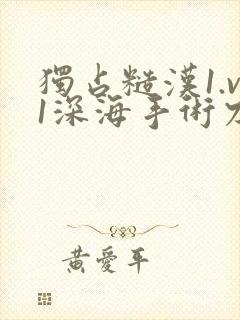 獨占糙漢1.v
1深海手術刀
黃愛平